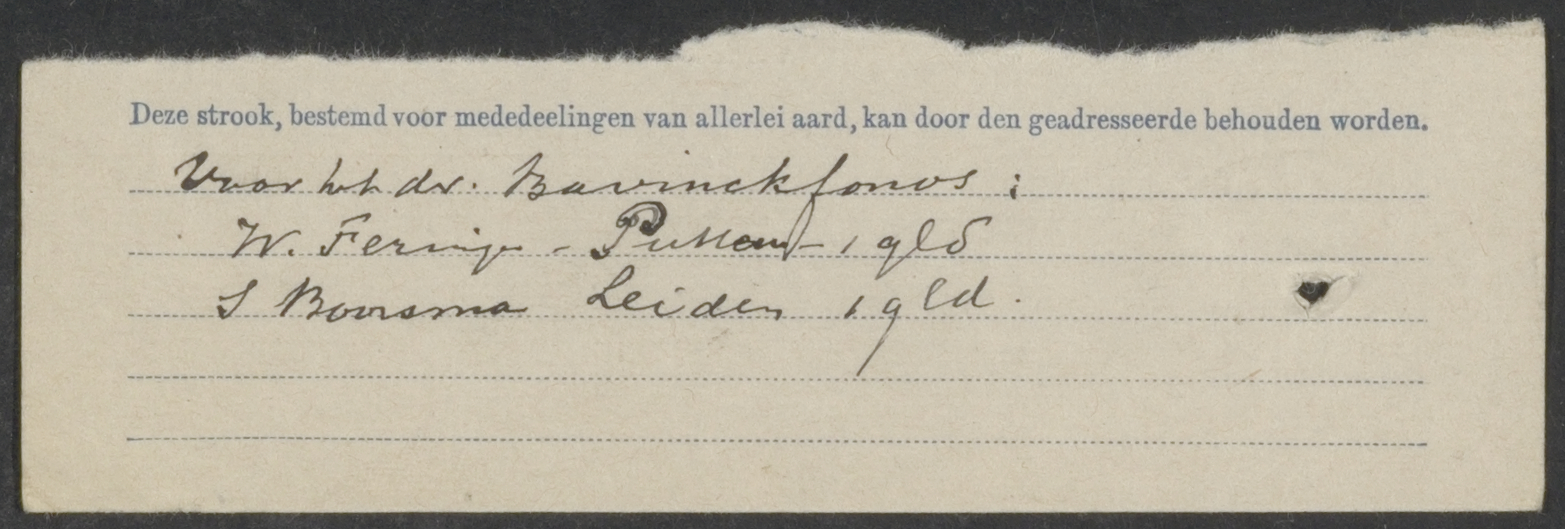 Deze strook, bestemd voor mededeelingen van allerlei aard, kan door den geadresseerde behouden worden.
Voor het dr. Bavinckfonds :
W. Feringa - Putten - 1 gld
S Boorsma Leiden 1 gld.